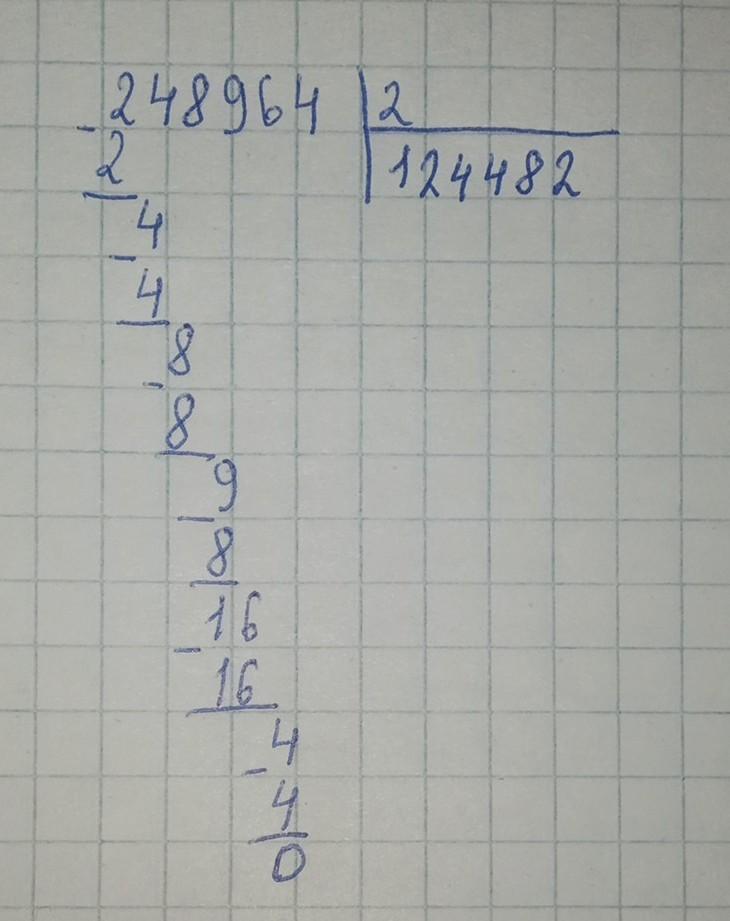 248964 2
-2 124482
4
-4
8
-8
9
-8
16
-16
4
-4
0